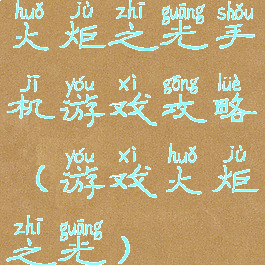 huǒ jù zhī guāng shǒu
火炬之光手
jī yóu xì gōng lüè
机游戏攻略
yóu xì huǒ jù
（游戏火炬
zhī guāng
之光）